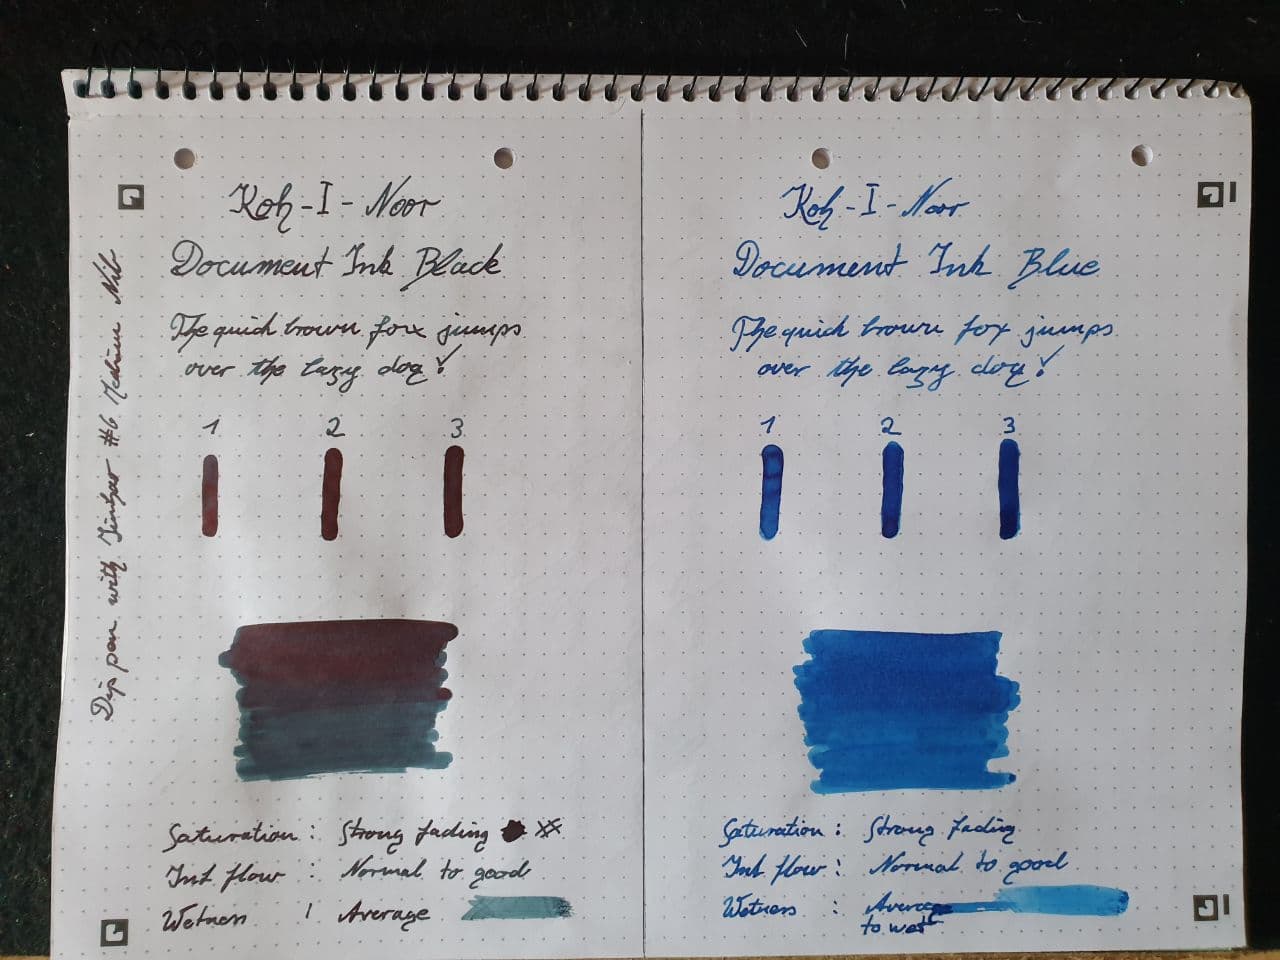 Koh-I-Noor
Document Ink Black
The quick brown fox jumps
over the lazy dog!
1 2 3
Saturation: Strong fading
Ink flow: Normal to good
Wetness: Average
Dip pen with Jinhao #6 Medium Nib
Koh-I-Noor
Document Ink Blue
The quick brown fox jumps
over the lazy dog!
1 2 3
Saturation: Strong fading
Ink flow: Normal to good
Wetness: Average
to wet